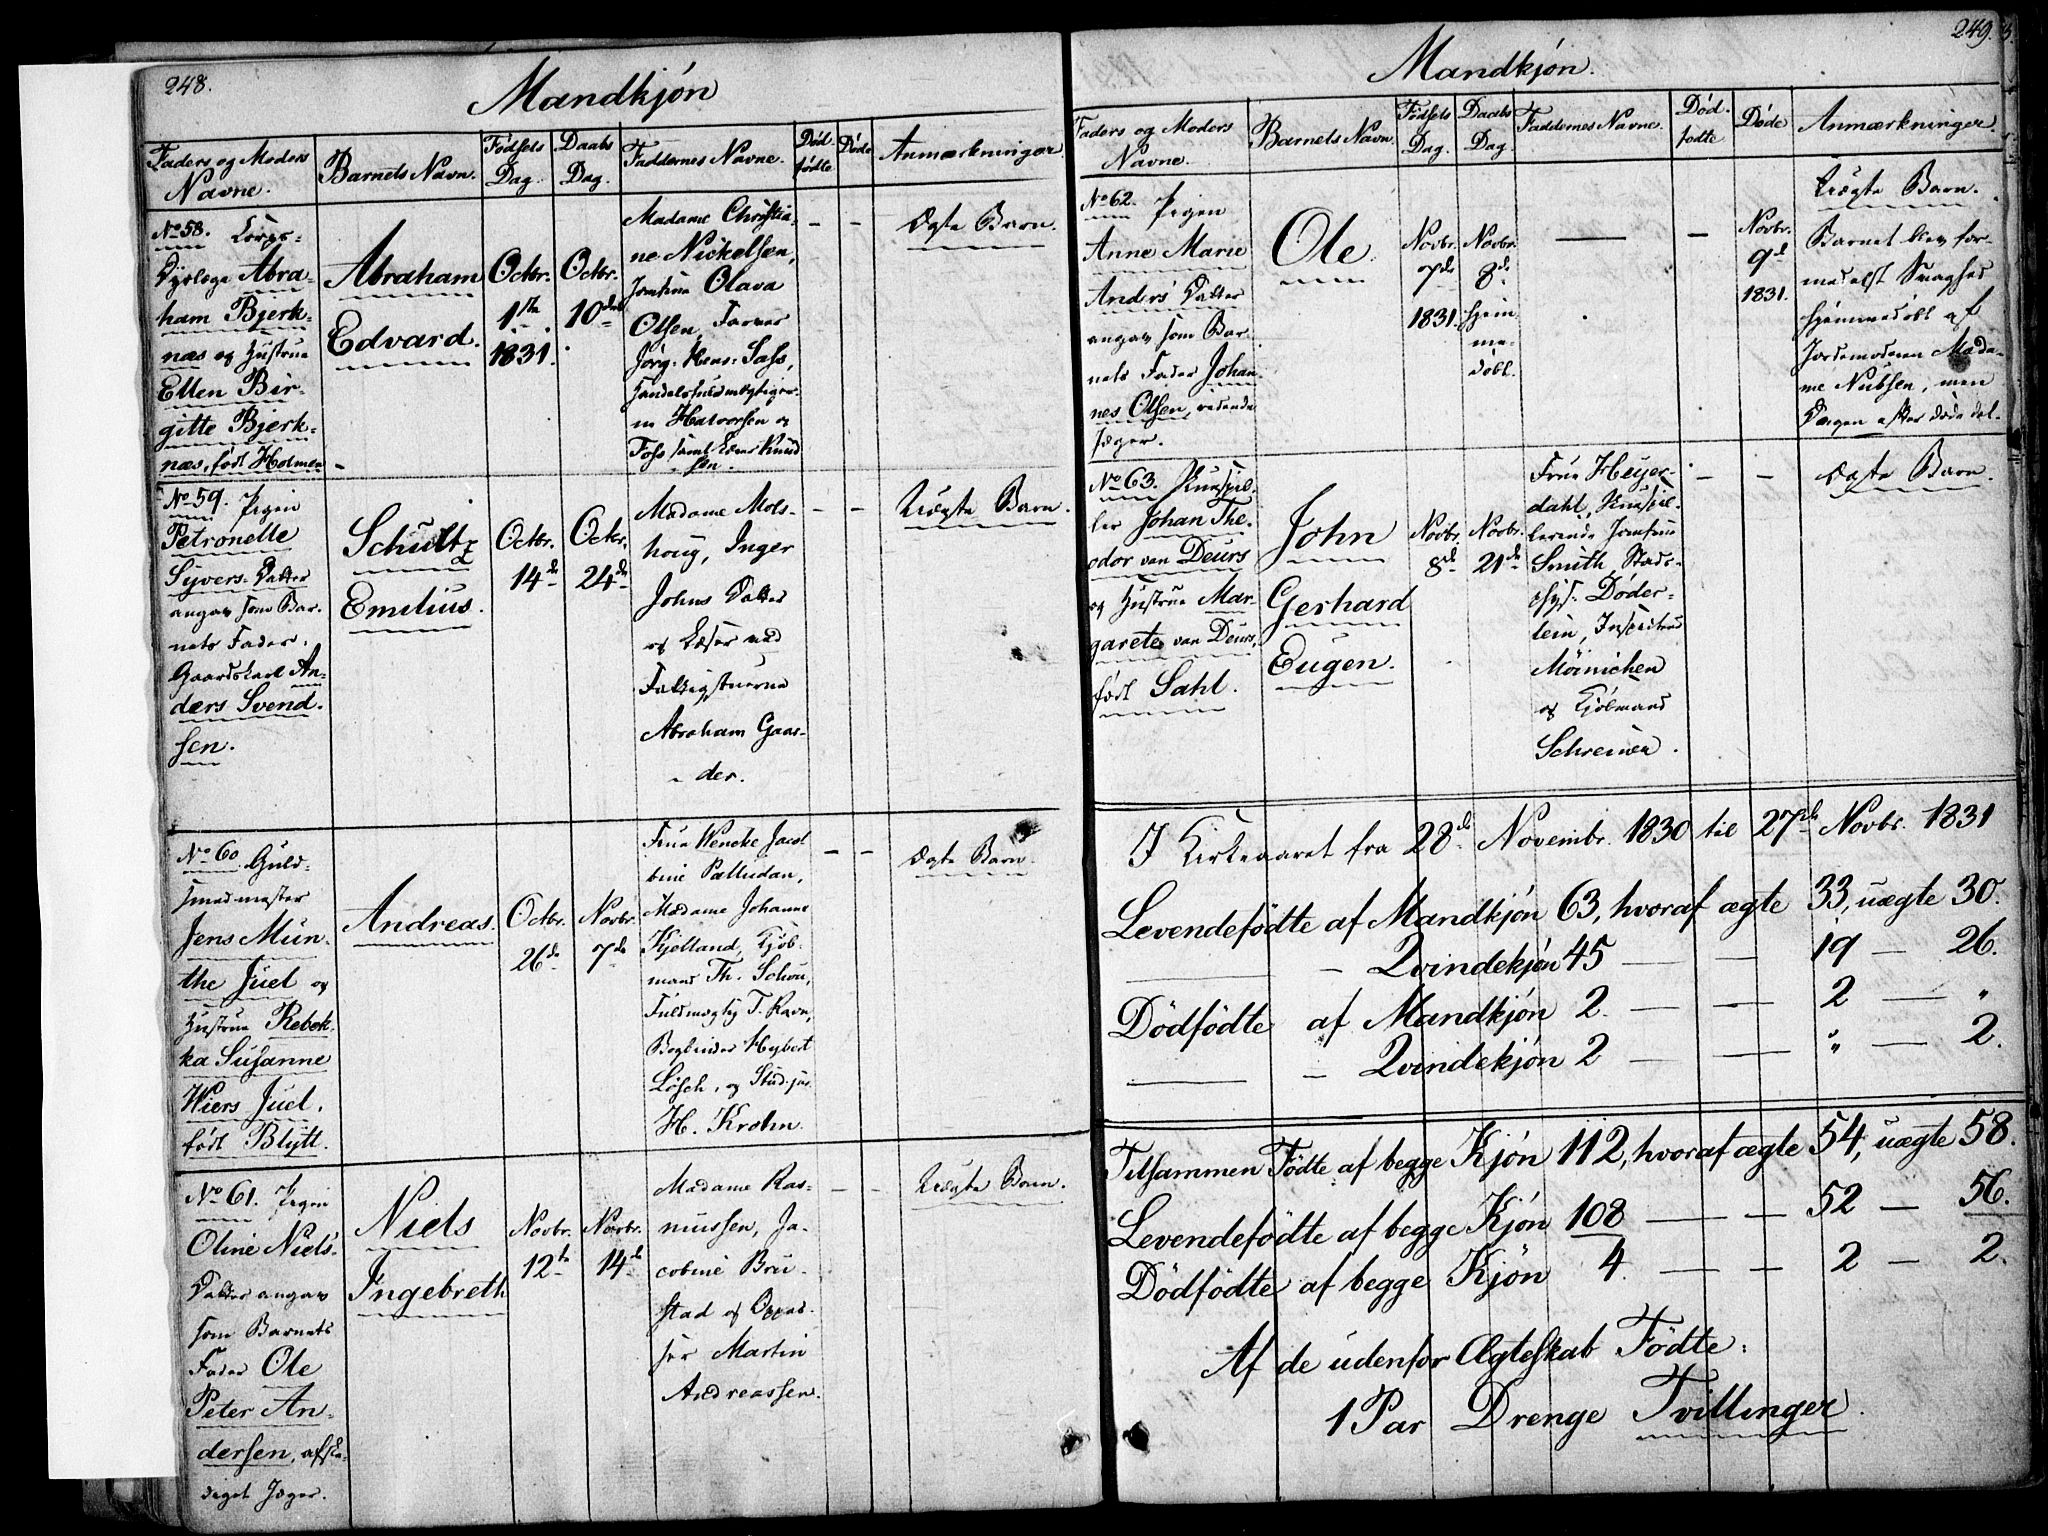 248.
Mandkjön
Faders og Moders
Navne.
Barnets Navn.
Födsels
Dag.
Daabs
Dag.
Faddernes Navne.
Död
födte
Döde
Anmærkninger
No 58. Corps-
Dyrlæge Abra-
ham Bjerk-
næs og Hustrue
Ellen Bir-
gitte Bjerk-
næs, föd Holmen
Abraham
Edvard.
Octbr.
1ste
1831.
Octbr.
10de
Madame Christia-
ne Nickelsen,
Jomfrue Olava
Olsen, Farver
Jörg. Hans: Sass,
Handelsfuldmægtiger-
ne Halvorsen og
Foss samt Knud
sen.
Ægte Barn.
No 59. Pigen
Petronelle
Syvers Datter
angav som Bar-
nets Fader,
Gaardskarl An-
ders Svend-
sen.
Schultz
Emilius.
Octbr.
14de
Octbr.
24de
Madame Mols-
houg, Inger
Johns Datter
og Læser ved
Fattigstuerne
Abraham Gaas-
der.
Uægte Barn.
No 60. Guld-
smedmester
Jens Mun-
the Juel og
Hustrue Rebek-
ka Susanne
Wiers Juel,
föd Blytt.
Andreas.
Octbr.
26de
Novbr.
7de
Frue Wencke Jacol
bine Palludan,
Madame Johanne
Kjelland, Kjöb-
mand Th. Schou,
Fuldmægtig T. Ravn,
Bogbinder Hybert
Lösch, og Stud. jur.
H. Krohn.
Ægte Barn.
No 61. Pigen
Oline Niels-
Datter angav
som Barnets
Fader Ole
Peter An-
dersen, afske-
diget Jæger.
Niels
Ingebreth
Novbr.
12te
Novbr.
14de
Madame Ras-
mussen, Ja-
cobine Bru-
stad og Oppas-
ser Martin
Andreassen.
Uægte Barn.
249.
Mandkjön.
Faders og Moders
Navne.
Barnets Navn.
Födsels
Dag.
Daabs
Dag.
Faddernes Navne.
Död-
födte
Döde
Anmærkninger.
No 62. Pigen
Anne Marie
Anders' Datter
angav som Bar-
nets Fader Johan-
nes Olsen, ridende
Jæger.
Ole.
Novbr.
7de
1831.
Novbr.
8de
Hjem-
me-
döbt.
Novbr.
9de
1831.
Uægte Barn.
Barnet blev for-
medelst Svaghed
hjemmedöbt af
Jordemoderen Mada-
me Nubsen, men
Dagen efter döde det.
No 63. Skuespil-
ler Johan The-
odor van Deurs
og Hustrue Mar-
garete van Deurs,
föd Sahl.
John
Gerhard
Eugen.
Novbr.
8de
Novbr.
21de
Frue Heyer-
dahl, Skuespil-
lerinde Jomfrue
Smith, Stads-
phys. Döder-
lein, Inspecteur
Möinichen
og Kjöbmand
Schreiner.
Ægte Barn.
I Kirkeaaret fra 28de Novembr. 1830 til 27de Novbr. 1831
Levendefödte af Mandkjön 63, hvoraf ægte 33, uægte 30.
— - Qvindekjön 45 — — 19 — 26.
Dödfödte af Mandkjön 2. — — 2 — "
— - Qvindekjön 2 — — " — 2.
Tilsammen Födte af begge Kjön 112, hvoraf ægte 54, uægte 58.
Levendefödte af begge Kjön 108 — — 52 — 56.
Dödfödte af begge Kjön 4. — — 2 — 2.
Af de udenfor Ægteskab Födte:
1 Par Drenge Tvillinger.